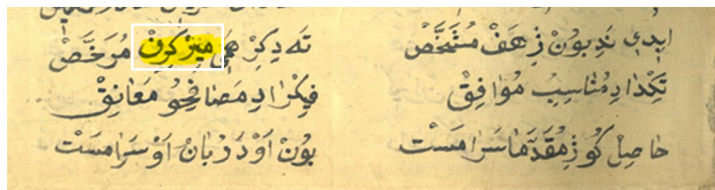 نَدِبُونْ زِهَفْ مُشَخَّصْ تَه دِكِرْ مِيزَكِرِنْ مُرَخَّصْ
تَكْدَا دِمُنَاسِبُ مُوَافِقْ فِيكْرَا دِمَصَافِحُو مَعَانِقْ
حَاصِلْ كُو زِمُقَدَّمَا سَرَامَسْتْ بُونْ اَوْ دَرْبَانْ اَوْ سَرَامَسْتْ